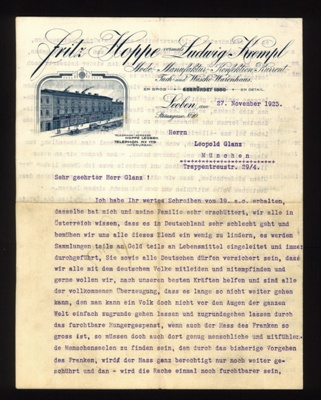 Fritz Hoppe vormals Ludwig Kumpf
Mode- Manufaktur- Konfektions-, Kurrent-
Tuch- und Wäsche-Warenhaus
EN GROS GEGRÜNDET 1880 EN DETAIL
Leoben, am 27. November 1923.
TELEGRAMM-ADRESSE:
HOPPE LEOBEN
TELEPHON NO 178
Herrn
Leopold Glanz
München
Trappentreustr. 29/4.
Sehr geehrter Herr Glanz !
Ich habe Ihr wertes Schreiben vom 19. s.c. erhalten,
dasselbe hat mich und meine Familie sehr erschüttert, wir alle in
Österreich wissen, dass es in Deutschland sehr schlecht geht und
bemühen wir uns alle dieses Elend ein wenig zu lindern, es werden
Sammlungen teils an Geld teils an Lebensmittel eingeleitet und immer
durchgeführt, Sie sowie alle Deutschen dürfen versichert sein, dass
wir alle mit dem deutschen Volke mitleiden und mitempfinden und
gerne wollen wir, nach unseren besten Kräften helfen und sind alle
der vollkommenen Überzeugung, dass es lange so nicht weiter gehen
kann, den man kann ein Volk doch nicht vor den Augen der ganzen
Welt einfach zugrunde gehen lassen und zugrundegehen lassen durch
das furchtbare Hungergespenst, wenn auch der Hass des Franken so
gross ist, so müssen doch auch dort genug menschliche und mitfühlen-
de Menschenseelen zu finden sein, den durch das bisherige Vorgehen
des Franken, wird der Hass ganz berechtigt nur noch weiter ge-
schührt und dan - wird die Rache einmal noch furchtbarer sein,